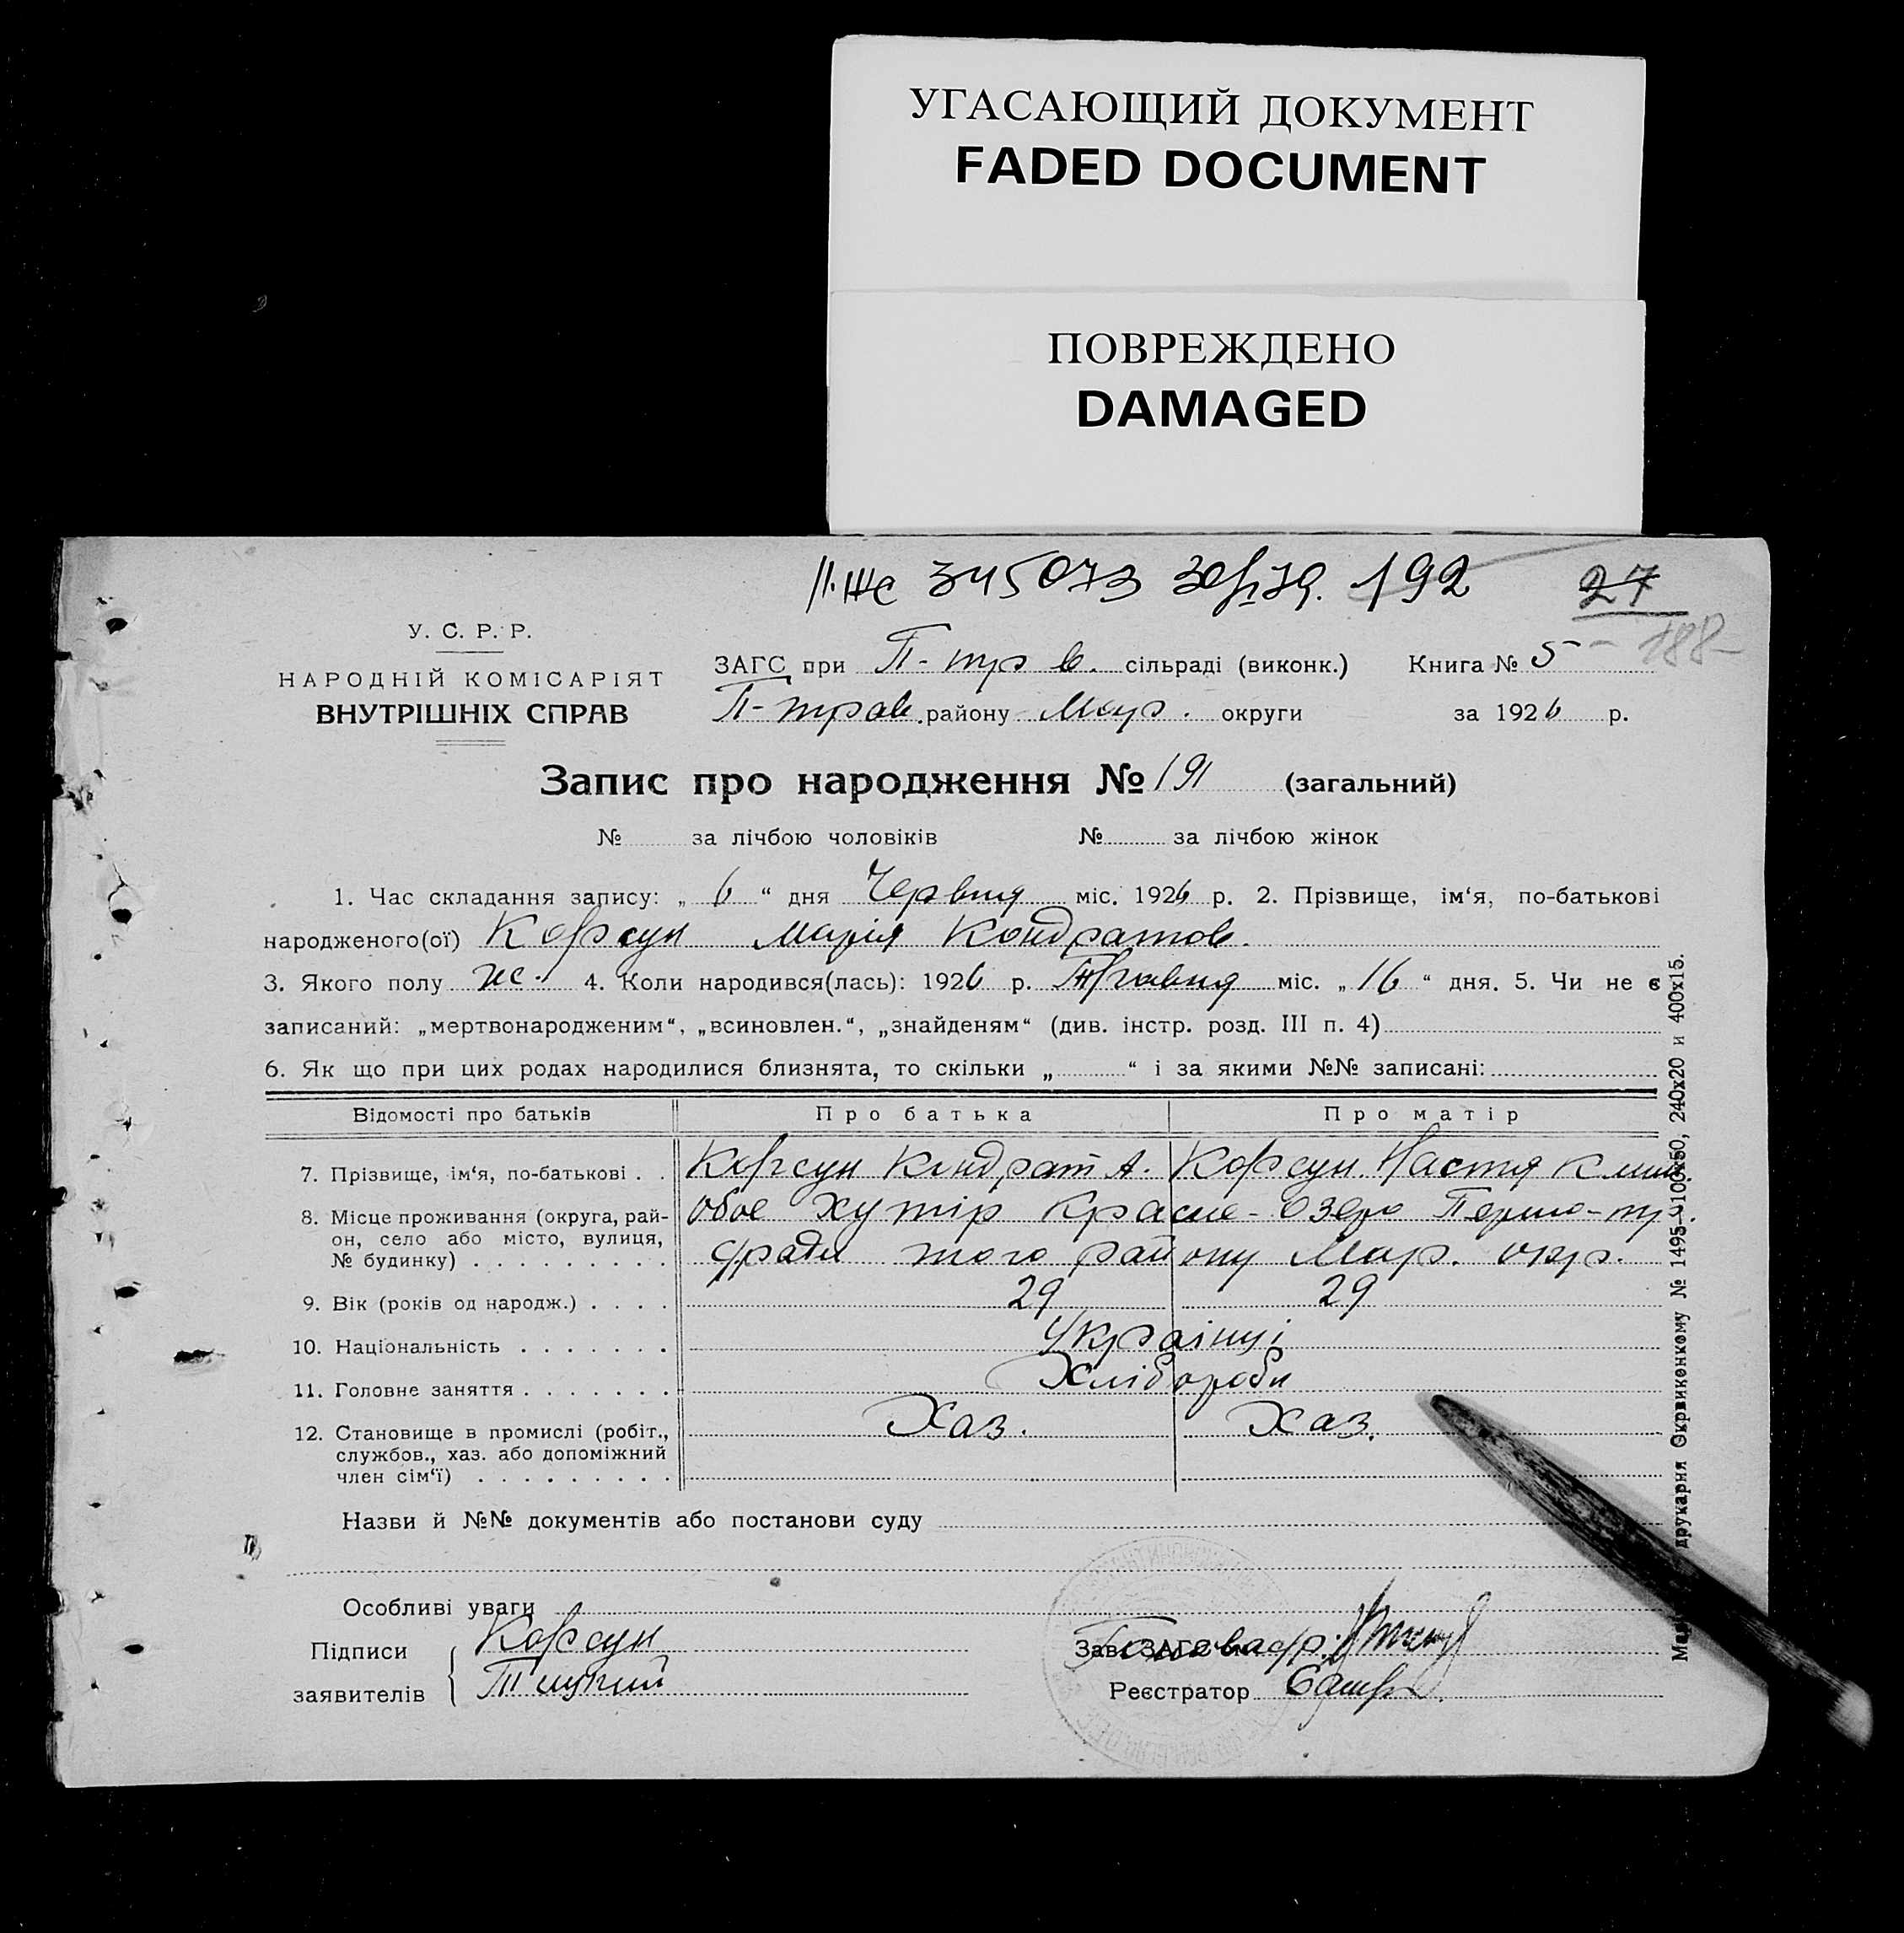 УГАСАЮЩИЙ ДОКУМЕНТ
FADED DOCUMENT
ПОВРЕЖДЕНО
DAMAGED
345073 192 27
188
У. С. Р. Р.
НАРОДНІЙ КОМІСАРІЯТ
ВНУТРІШНІХ СПРАВ
ЗАГС при П- тр в. сільраді (виконк.) Книга № 5
П- трав. району Мар. округи за 1926 р.
Запис про народження № 191 (загальний)
№ за лічбою чоловіків № за лічбою жінок
1. Час складання запису: „ 6 “ дня Червня міс. 1926 р. 2. Прізвище, ім‘я, по-батькові
народженого(ої) Корсун Марія Кондратов.
3. Якого полу ж. 4. Коли народився(лась): 1926 р. Травня міс. „ 16 “ дня. 5. Чи не є
записаний: „мертвонародженим“, „всиновлен.“, „знайденям“ (див. інстр. розд. III п. 4)
6. Як що при цих родах народилися близнята, то скільки „ “ і за якими №№ записані:
Відомості про батьків Про батька Про матір
7. Прізвище, ім‘я, по-батькові . . Корсун Кондрат А. Корсун Настя Клим
8. Місце проживання (округа, рай- обое хутір Красне- Озеро Першо-тр.
он, село або місто, вулиця, 
№ будинку) с/ради того району Мар. окр.
9. Вік (років од народж.) . . . . 29 29
10. Національність . . . . . . . Українці
11. Головне заняття . . . . . . . Хлібороби
12. Становище в промислі (робіт., Хаз. Хаз.
службов., хаз. або допоміжний
член сім‘ї) . . . . . . . . .
Назви й №№ документів або постанови суду
Особливі уваги
Підписи Корсун Зав. ЗАГС Голова с/р.
заявителів Реєстратор
друкарня Окрвиконкому № 1495—100х50, 240х20 и 400х15.